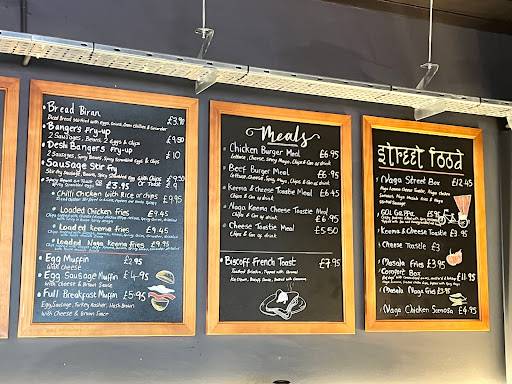 Bread Biran £3.95
Bangers Fry-up £9.50
2 Sausages, Beans, 2 eggs & Chips
Deshi Bangers Fry-up £10
2 Sausages, Spicy Beans, Spicy Scrambled eggs & chips
Sausage Stir Fry £9.50
Stir fry Sausage, Beans, Spicy Scrambled egg with chips
£3.95
Chilli Chicken with Rice or chips £9.95
Loaded Chicken fries £9.45
Loaded Keema fries £9.45
Loaded Naga Keema fries £9.95
Egg Muffin £2.95
with Cheese
Egg Sausage Muffin £4.95
with cheese & Brown Sauce
Full Breakfast Muffin £5.95
Egg, Sausage, Turkey Rasher, Hash Brown
with Cheese & Brown Sauce
Meals
Chicken Burger Meal £6.95
Lettuce, Cheese, Spicy Mayo, Chips & Can of drink
Beef Burger Meal £6.95
Lettuce, Cheese, Spicy Mayo, Chips & Can of drink
Keema & Cheese Toastie Meal £6.45
Chips & Can of drink
Naga Keema Cheese Toastie Meal £6.95
Chips & Can of drink
Cheese Toastie Meal £5.50
Chips & Can of drink
Biscoff French Toast £7.95
Street Food
Naga Street Box £12.45
GOL Gappe £5.95
Keema & Cheese Toastie £3.95
Cheese Toastie £3
Masala Fries £3.95
Comfort Box £11.95
Masala Naga Fries £3.95
Naga Chicken Samosa £4.95